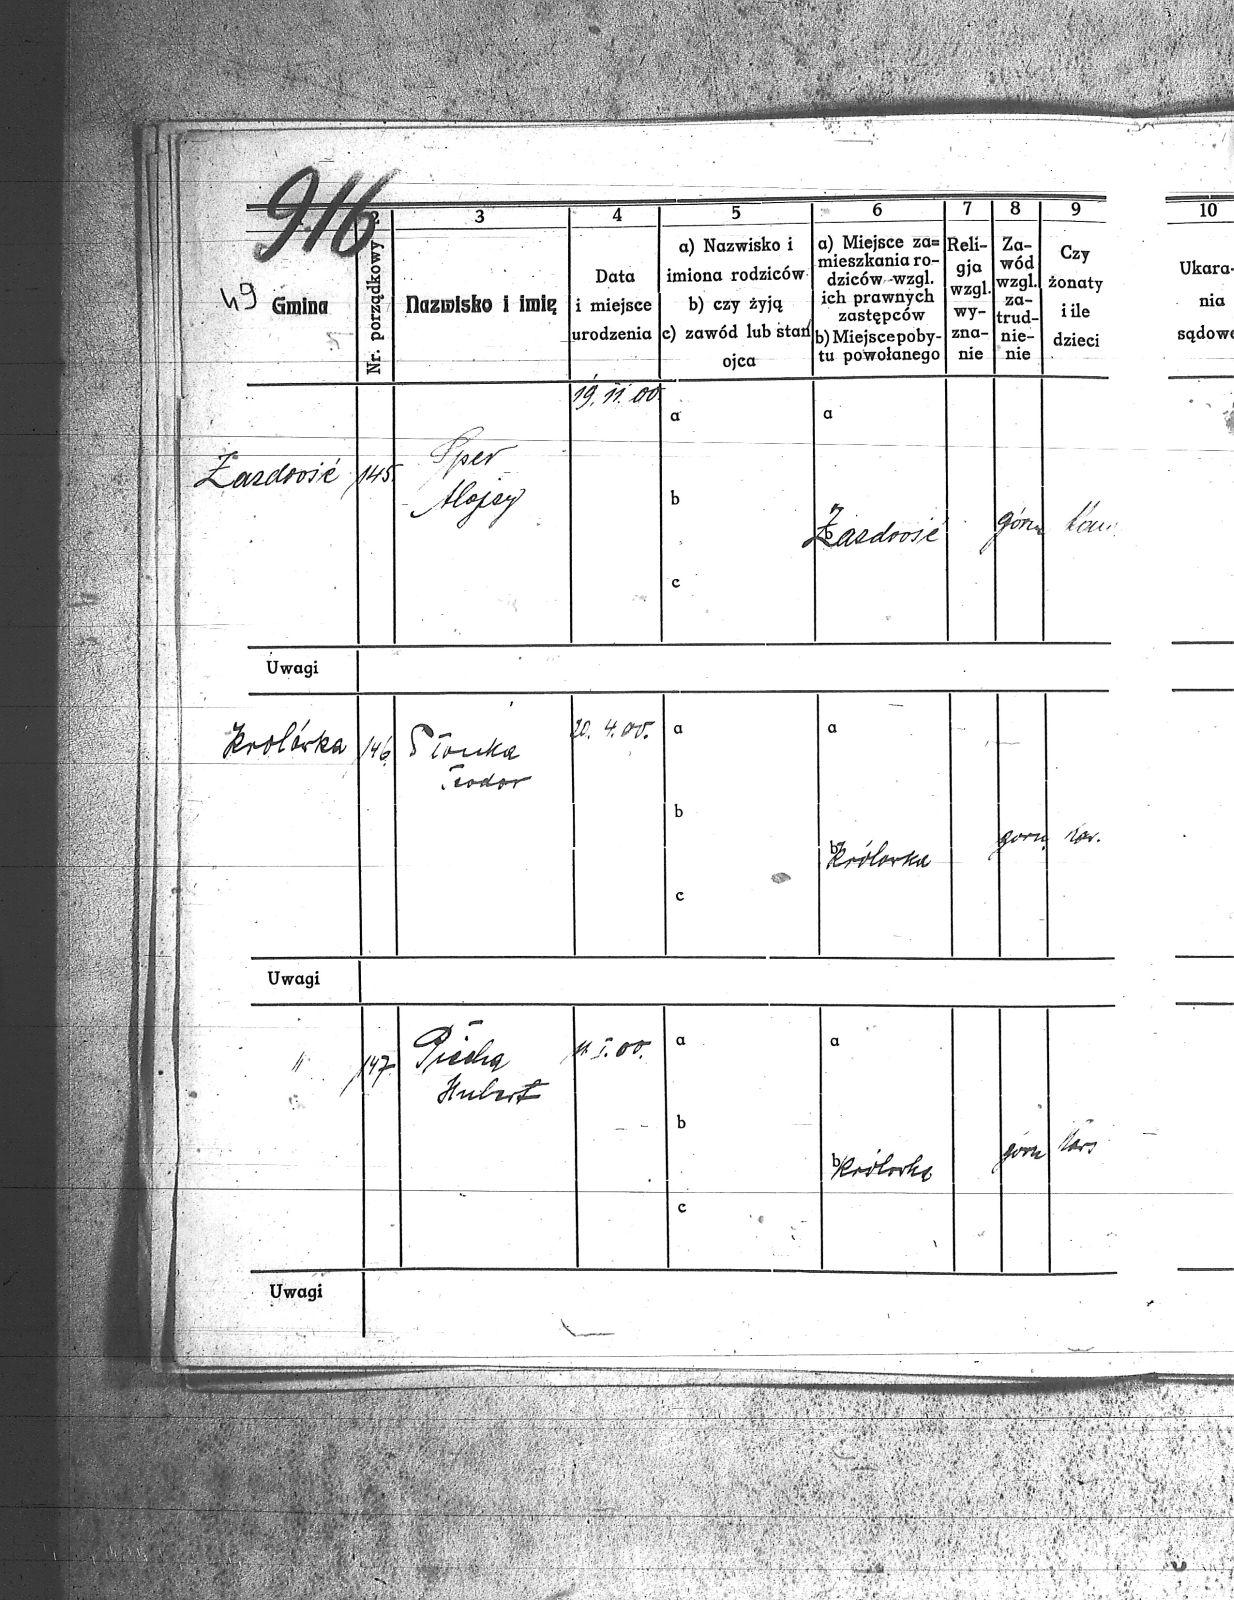 916
49
Gmina
2
Nr. porządkowy
3
Nazwisko i imię
4
Data
i miejsce
urodzenia
5
a) Nazwisko i
imiona rodziców
b) czy żyją
c) zawód lub stan
ojca
6
a) Miejsce za=
mieszkania ro-
dziców wzgl.
ich prawnych
zastępców
b) Miejsce poby-
tu powołanego
7
Reli-
gja
wzgl.
wy-
zna-
nie
8
Za-
wód
wzgl.
za-
trud-
nie-
nie
9
Czy
żonaty
i ile
dzieci
10
Ukara-
nia
sądowe
Zazdrość
145.
Sper
Alojzy
19. II. 00.
a
b
c
a
b
Zazdrość
górn
Uwagi
Krolówka
146
Słonka
Teodor
20. 4. 00.
a
b
c
a
b
Królowka
gorn.
Uwagi
"
147
Piecha
Hubert
I. 00.
a
b
c
a
b
Królowka
górn
Uwagi